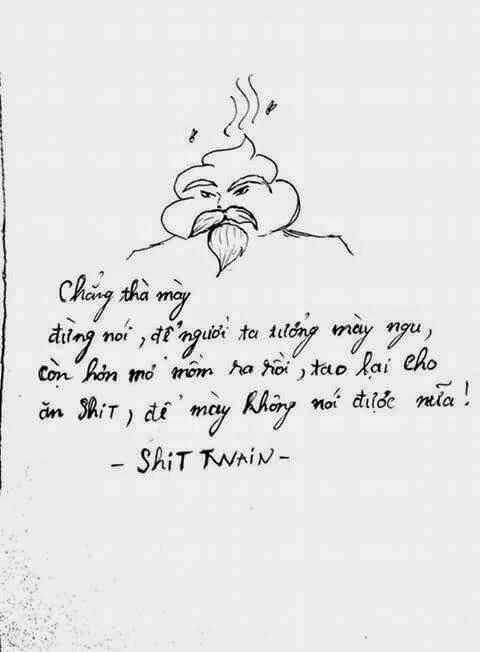 Chẳng thà mày
đừng nói, để người ta tưởng mày ngu,
còn hơn mở mồm ra rồi, tao lại cho
ăn Shit, để mày không nói được nữa!
- Shit TWAIN -